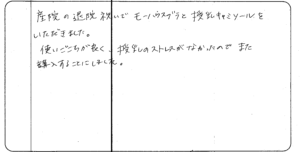 産院の退院祝いで モーハウスブラと 授乳キャミソールを
いただきました。
使いごこちが良く、授乳のストレスがなかったので また
購入することにしました。